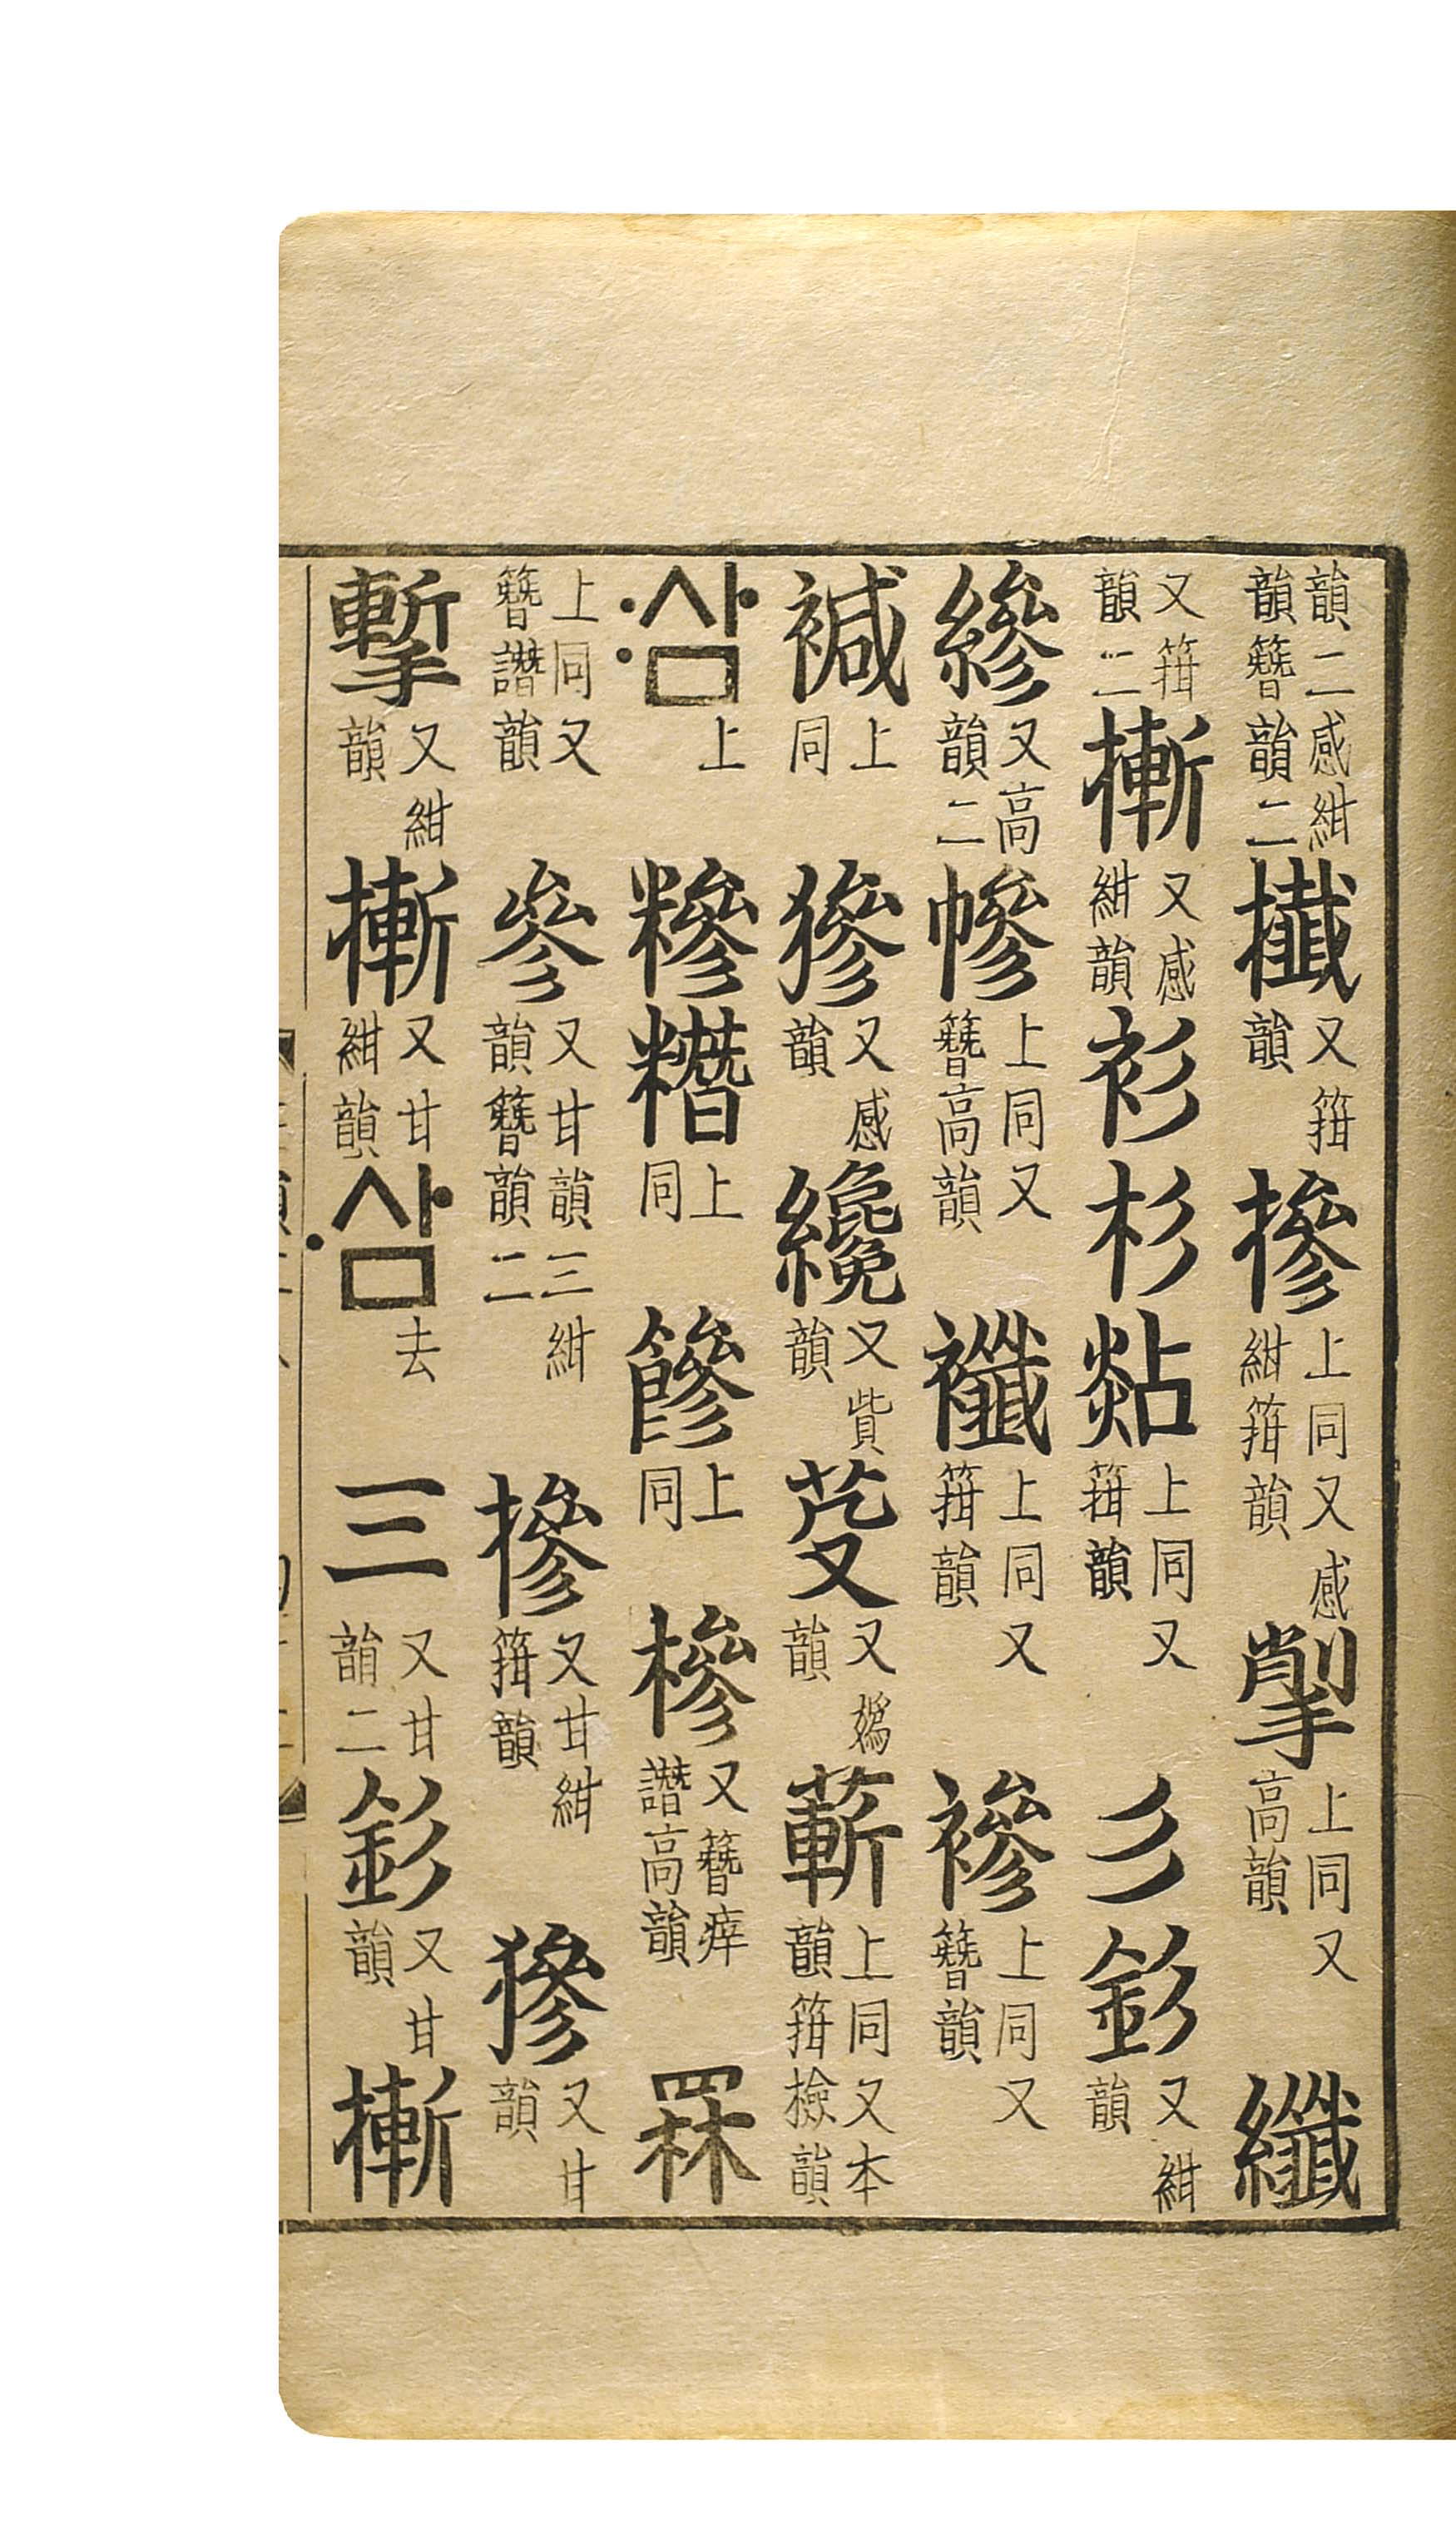 韻二感紺韻簪韻二攕又箝韻摻上同又感紺箝韻揱上同又高韻纖
又箝韻二摲又感紺韻衫杉煔上同又箝韻彡釤又紺韻
縿又高韻二幓上同又簪高韻襳上同又箝韻襂上同又簪韻
上同㺑又感韻纔又貲韻芟又嬀韻蔪上同又本韻箝檢韻
〯삼上糝糣上同上同槮又簪痒譖高韻罧
上同又簪譖韻參又甘韻三紺韻簪韻二摻又甘紺箝韻㺑又甘韻
又紺韻摲又甘紺韻〮삼去三又甘韻二釤又甘韻摲